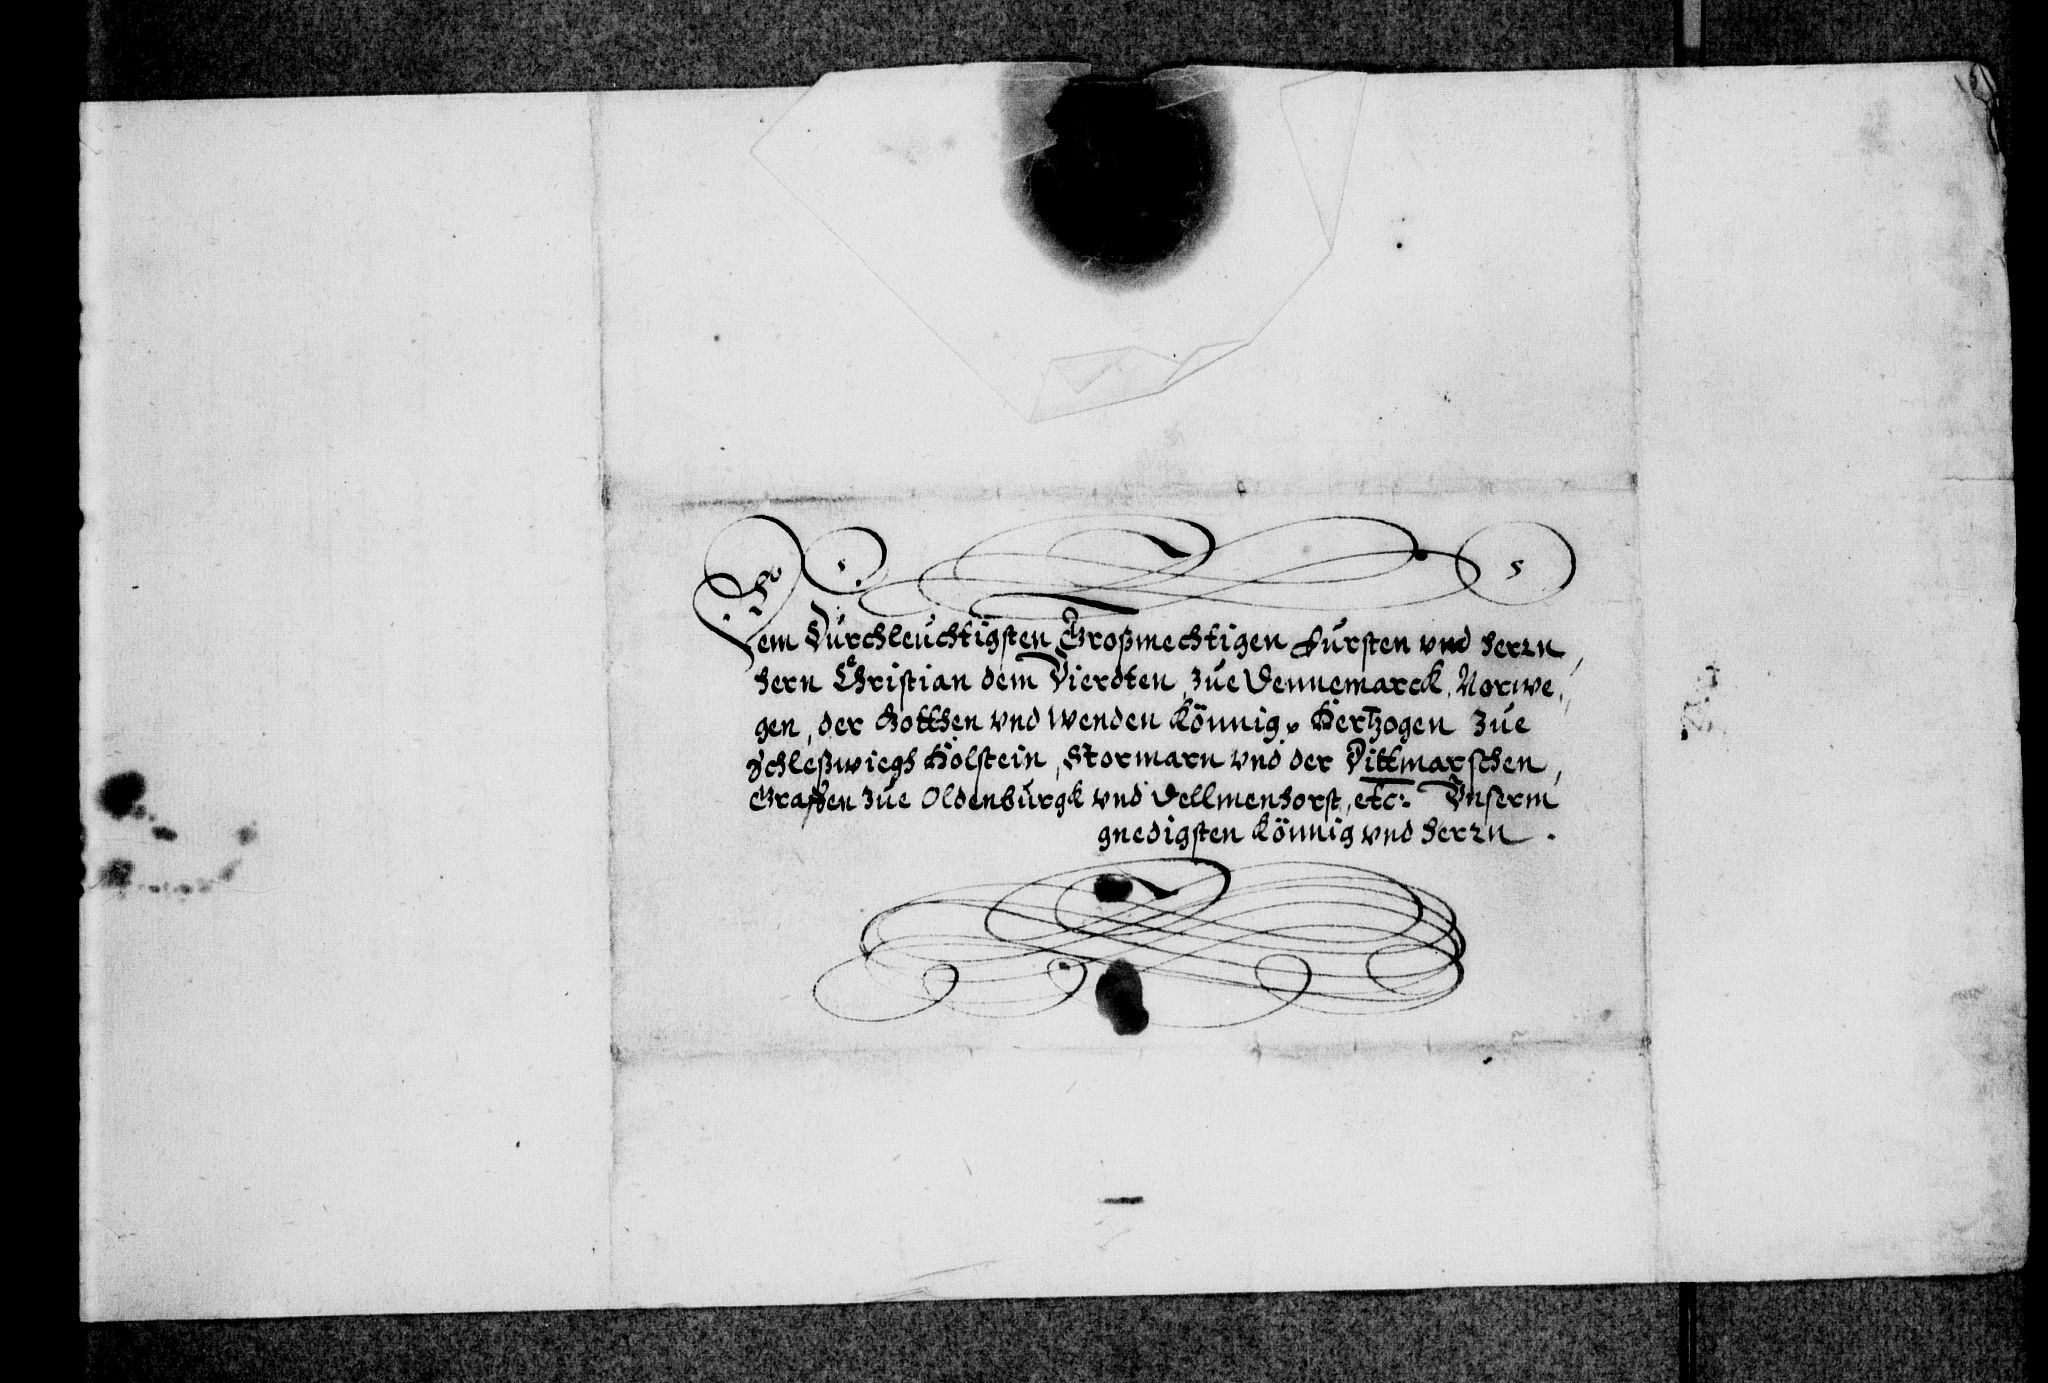 Dem Durchleuchtigsten Großmechtigen Fursten vnd Herrn,
Hern Christian dem Vierdten, zue Dennemarck, Norwe,,
gen, der Gotthen vnd Wenden Könnig, Hertzogen zue
Schleßwiegh Holstein, Stormarn vnd der Dittmarschen,
Graffen zue Oldenburgk vnd Dellmenhorst, etc: Vnserm
gnedigsten Könnig vnd Herrn.